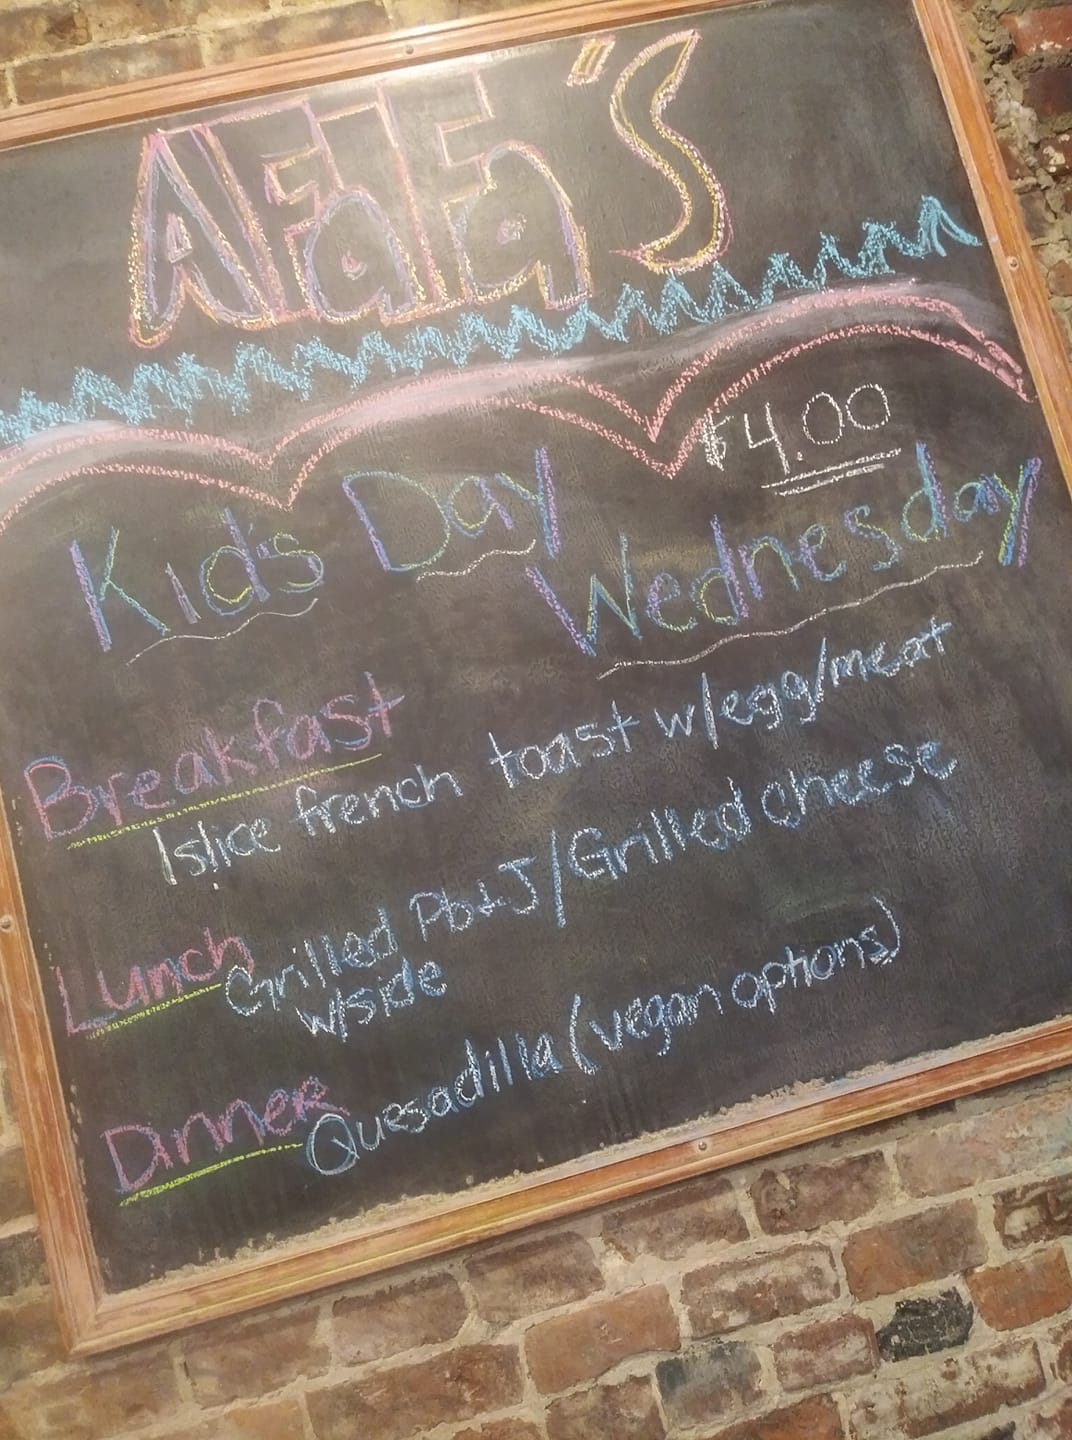 AFaFa's
$4.00
Kid's Day
Wednesday
Breakfast
1 slice french toast w/egg/meat
Lunch
Grilled Pb&J/Grilled cheese
w/side
Dinner
Quesadilla (vegan options)